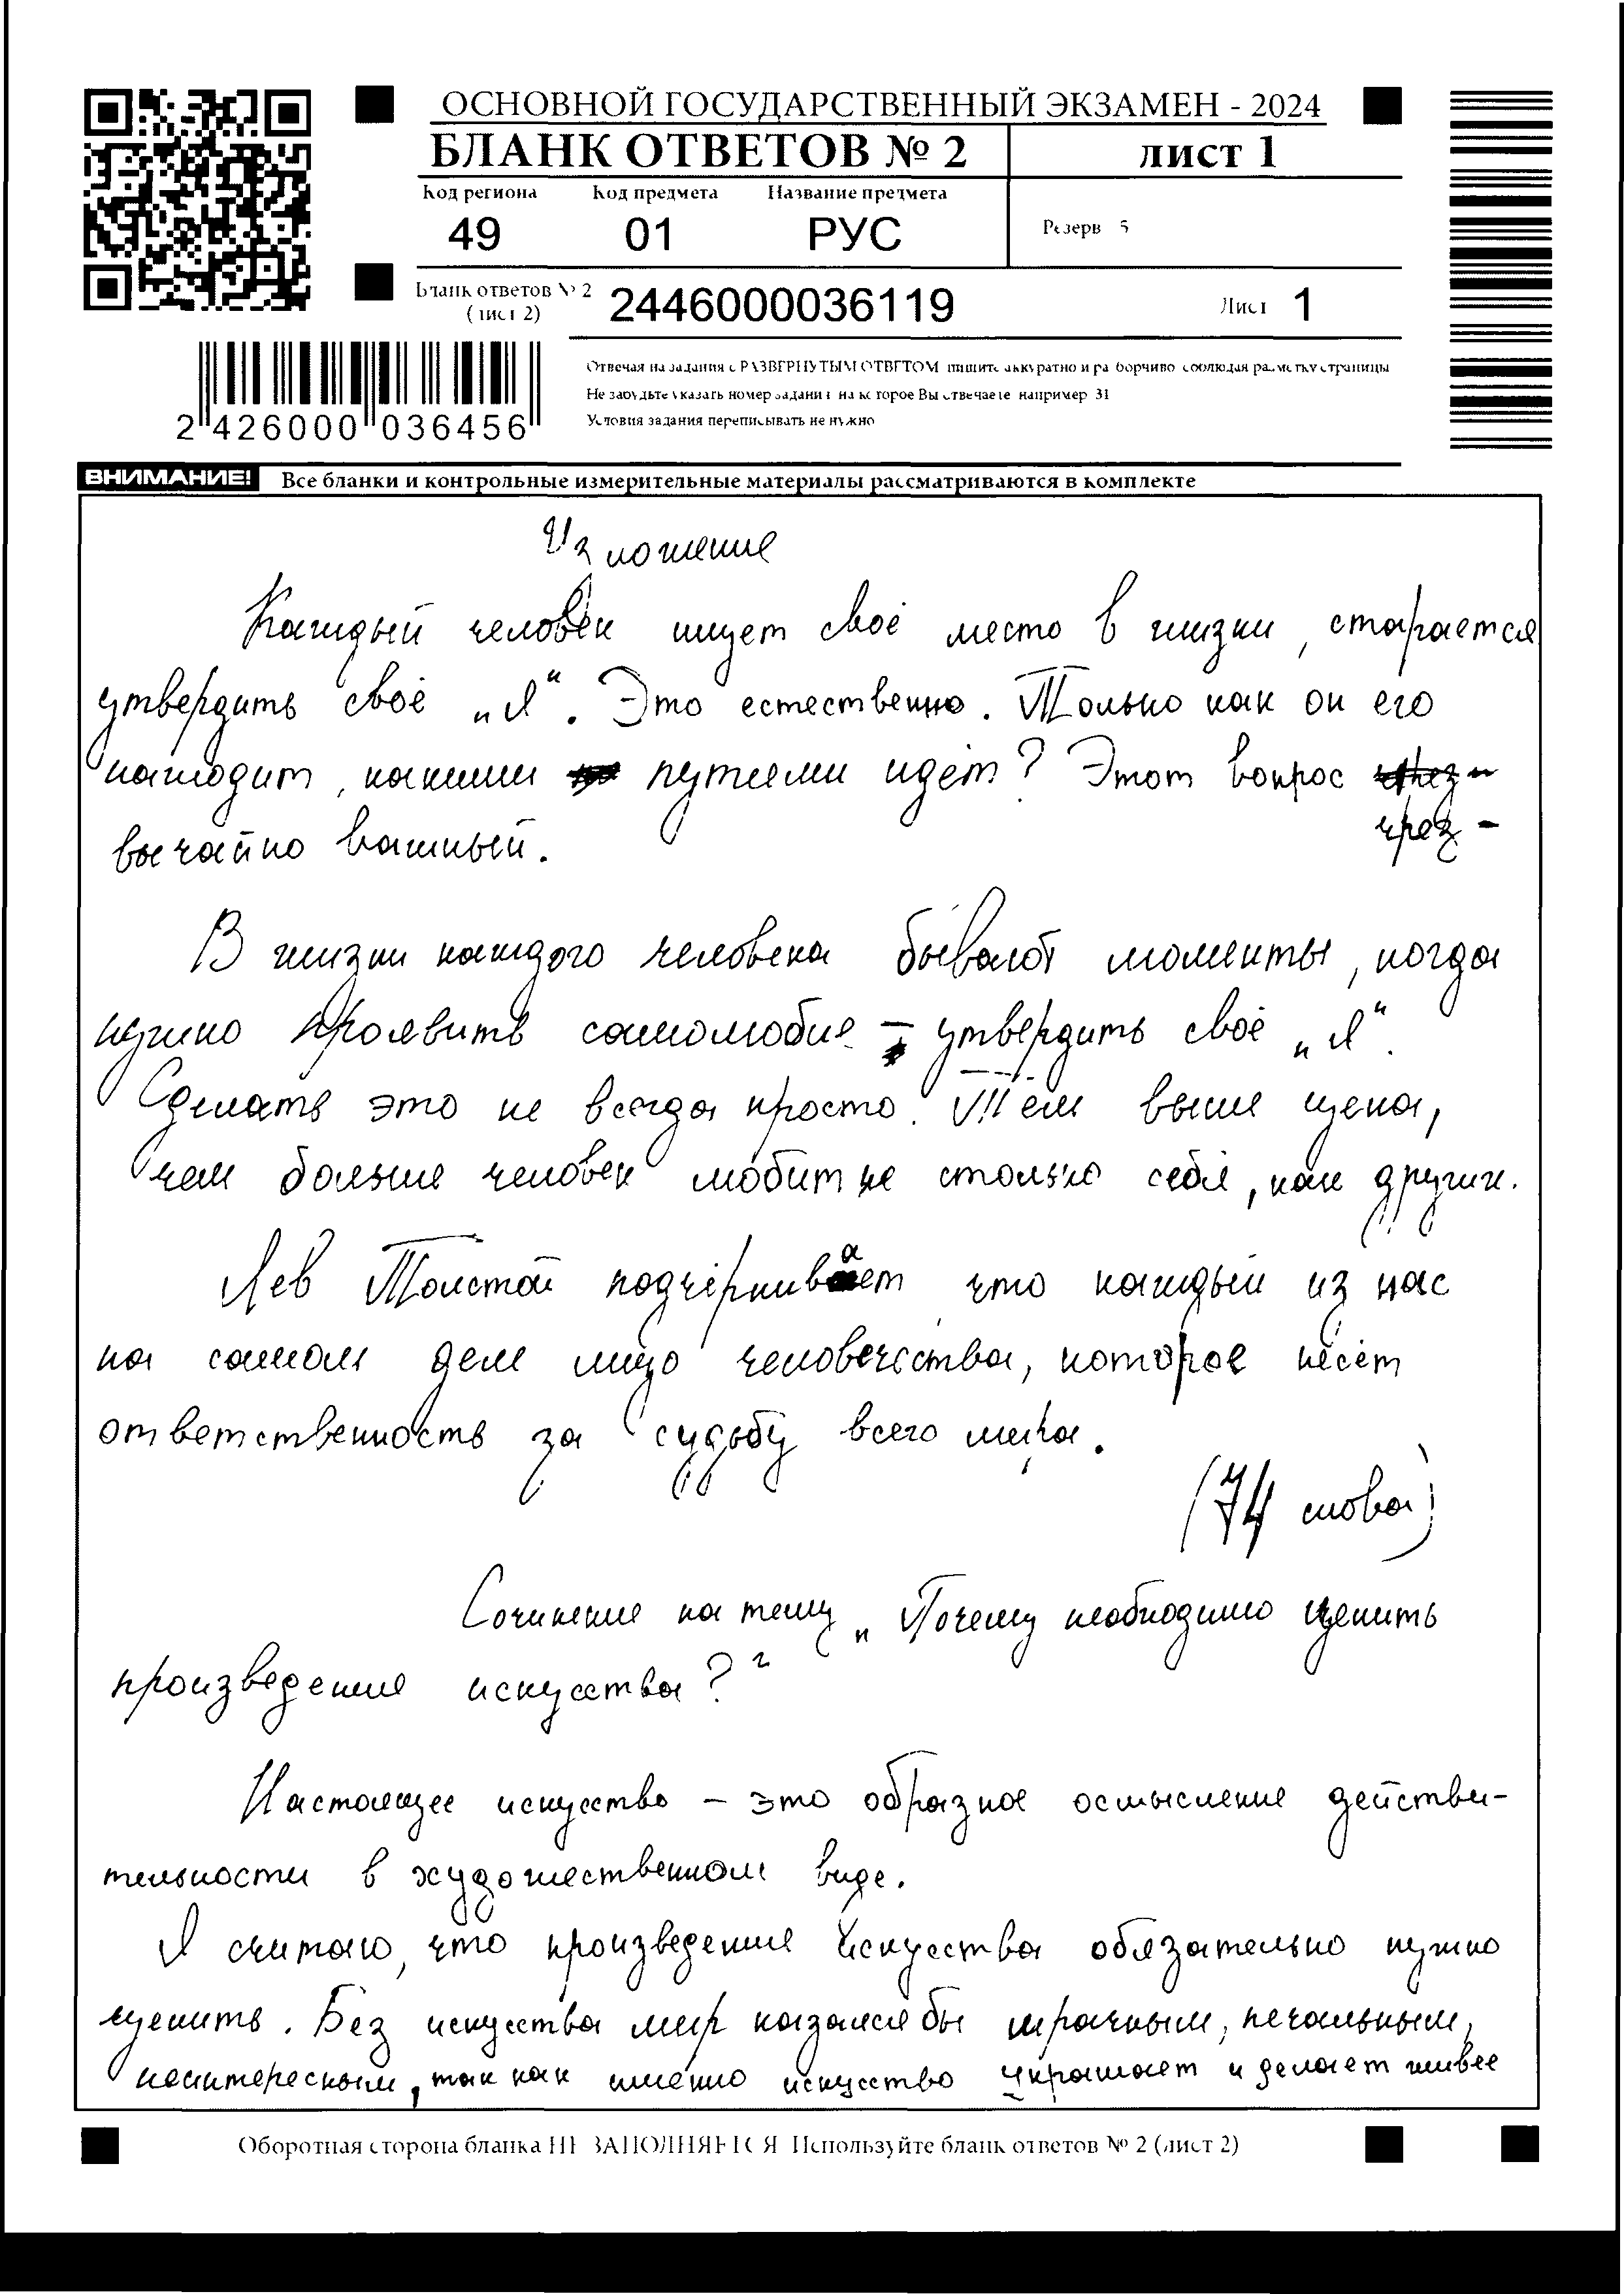 ОСНОВНОЙ ГОСУДАРСТВЕННЫЙ ЭКЗАМЕН - 2024
БЛАНК ОТВЕТОВ № 2
ЛИСТ 1
Код региона Код предмета Название предмета
49 01 РУС
Резерв 5
Бланк ответов № 2 (лист 2) 2446000036119
Лист 1
Отвечая на задания с РАЗВЕРНУТЫМ ОТВЕТОМ пишите аккуратно и разборчиво соблюдая разметку страницы
Не забудьте указать номер задания на которое Вы отвечаете например 31
Условия задания переписывать не нужно
2 426000 036456
ВНИМАНИЕ! Все бланки и контрольные измерительные материалы рассматриваются в комплекте
Изложение
Каждый человек ищет своё место в жизни, старается
утвердить своё „Я“. Это естественно. Только как он его
находит, какими путями идёт? Этот вопрос чрез-
вычайно важный.
В жизни каждого человека бывают моменты, когда
нужно проявить самолюбие – утвердить своё „Я“.
Сделать это не всегда просто. Тем выше цена,
чем больше человек любит не столько себя, как других.
Лев Толстой подчёркивает что каждый из нас
на самом деле лицо человечества, которое несёт
ответственность за судьбу всего мира.
(74 слова)
Сочинение на тему „Почему необходимо ценить
произведение искусства?“
Настоящее искусство – это образное осмысление действи-
тельности в художественном виде.
Я считаю, что произведение искусства обязательно нужно
ценить. Без искусства мир казался бы мрачным, печальным,
неинтересным, так как именно искусство украшает и делает живее
Оборотная сторона бланка НЕ ЗАПОЛНЯЕТСЯ Используйте бланк ответов № 2 (лист 2)